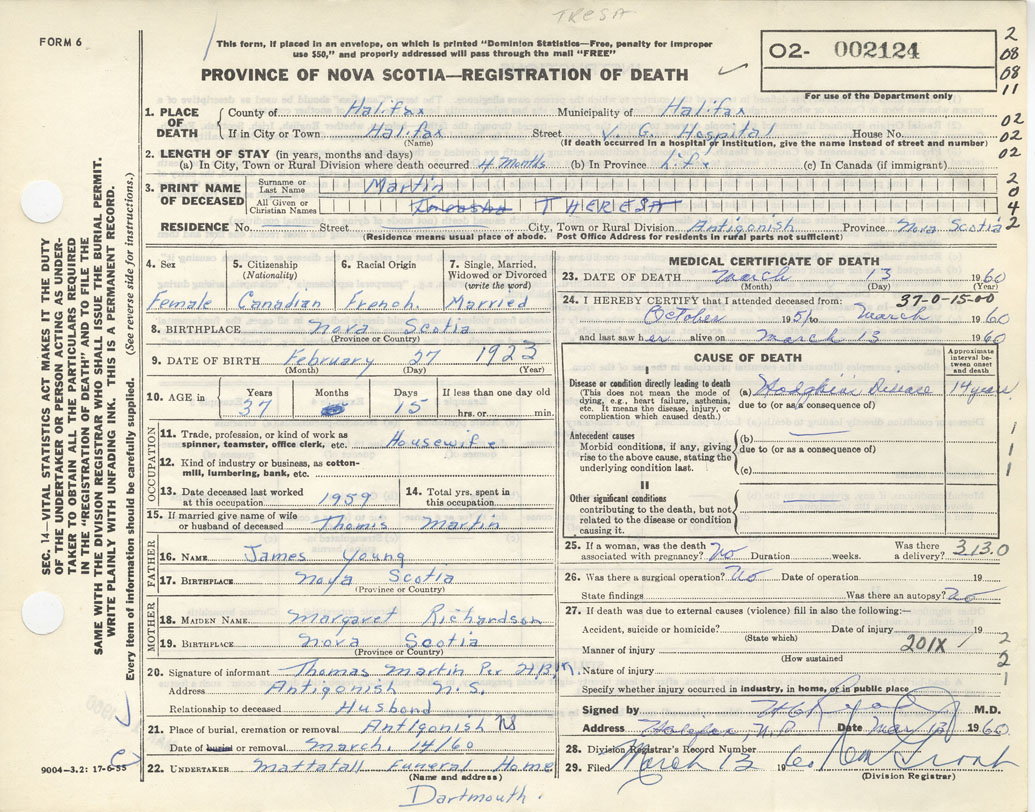 TRESA
FORM 6
This form, if placed in an envelope, on which is printed "Dominion Statistics—Free, penalty for improper
use $50," and properly addressed will pass through the mail "FREE"
PROVINCE OF NOVA SCOTIA—REGISTRATION OF DEATH
O2- 002124
For use of the Department only
2
08
08
11
02
02
02
2
0
4
2
1. PLACE OF DEATH County of Halifax Municipality of Halifax
If in City or Town Halifax Street V. G. Hospital House No.
(Name) (If death occurred in a hospital or institution, give the name instead of street and number)
2. LENGTH OF STAY (in years, months and days)
(a) In City, Town or Rural Division where death occurred 4 months (b) In Province Life (c) In Canada (if immigrant)
3. PRINT NAME OF DECEASED Surname or Last Name Martin
All Given or Christian Names THERESA
RESIDENCE No. Street City, Town or Rural Division Antigonish Province Nova Scotia
(Residence means usual place of abode. Post Office Address for residents in rural parts not sufficient)
SEC. 14—VITAL STATISTICS ACT MAKES IT THE DUTY
OF THE UNDERTAKER OR PERSON ACTING AS UNDER-
TAKER TO OBTAIN ALL THE PARTICULARS REQUIRED
IN THE "REGISTRATION OF DEATH AND FILE THE
SAME WITH THE DIVISION REGISTRAR WHO SHALL ISSUE THE BURIAL PERMIT.
WRITE PLAINLY WITH UNFADING INK. THIS IS A PERMANENT RECORD.
Every item of information should be carefully supplied. (See reverse side for instructions.)
4. Sex
Female
5. Citizenship
(Nationality)
Canadian
6. Racial Origin
French
7. Single, Married,
Widowed or Divorced
(write the word)
Married
8. BIRTHPLACE Nova Scotia
(Province or Country)
9. DATE OF BIRTH February 27 1923
(Month) (Day) (Year)
10. AGE in Years Months Days If less than one day old
37 15 hrs. or min.
OCCUPATION
11. Trade, profession, or kind of work as
spinner, teamster, office clerk, etc. Housewife
12. Kind of industry or business, as cotton-
mill, lumbering, bank, etc.
13. Date deceased last worked
at this occupation 1959
14. Total yrs. spent in
this occupation
15. If married give name of wife
or husband of deceased Thomas Martin
FATHER
16. NAME James Young
17. BIRTHPLACE Nova Scotia
(Province or Country)
MOTHER
18. MAIDEN NAME Margaret Richardson
19. BIRTHPLACE Nova Scotia
(Province or Country)
20. Signature of informant Thomas Martin Per H.B.M.
Address Antigonish N.S.
Relationship to deceased Husband
21. Place of burial, cremation or removal Antigonish NS
Date of burial or removal March. 14/60
22. UNDERTAKER Mattatall Funeral Home
(Name and address)
Dartmouth.
9004—3.2: 17-6-55
MEDICAL CERTIFICATE OF DEATH
23. DATE OF DEATH March 13 1960
(Month) (Day) (Year)
24. I HEREBY CERTIFY that I attended deceased from: 37-0-15-00
October 1951 to March 1960
and last saw her alive on March 13 1960
CAUSE OF DEATH
Approximate
interval be-
tween onset
and death
I
Disease or condition directly leading to death
(This does not mean the mode of
dying, e.g., heart failure, asthenia,
etc. It means the disease, injury, or
complication which caused death.)
(a) Hodgkins Disease 14 years
due to (or as a consequence of)
Antecedent causes
Morbid conditions, if any, giving
rise to the above cause, stating the
underlying condition last.
(b)
due to (or as a consequence of)
(c)
1
1
1
II
Other significant conditions
contributing to the death, but not
related to the disease or condition
causing it.
25. If a woman, was the death
associated with pregnancy? No Duration weeks. Was there
a delivery? 313.0
26. Was there a surgical operation? No Date of operation 19
State findings Was there an autopsy? No
27. If death was due to external causes (violence) fill in also the following:—
Accident, suicide or homicide? Date of injury 19
(State which)
Manner of injury 201X
(How sustained
Nature of injury
Specify whether injury occurred in industry, in home, or in public place
2
2
1
Signed by M.D.
Address Halifax, N.S. Date Mar 13 1960
28. Division Registrar's Record Number
29. Filed March 13 1960
(Division Registrar)